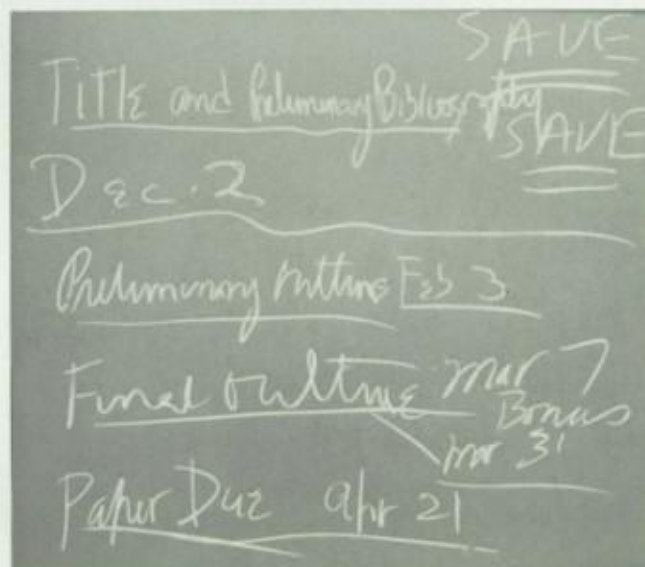 SAVE
Title and Preliminary Bibliography
SAVE
Dec. 2
Preliminary outline Feb 3
Final outline Mar 7
Bonus
Mar 31
Paper Due Apr 21